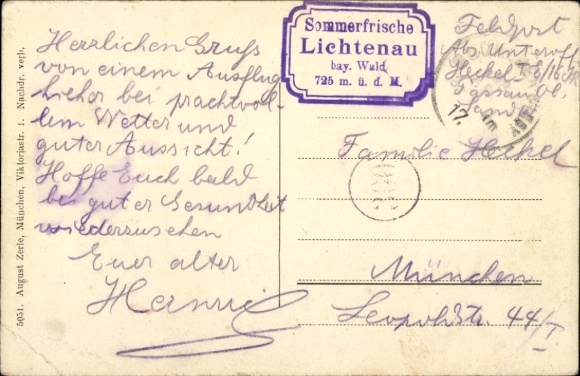 Herzlichen Gruß
von einem Ausflug
hieher bei prachtvol-
lem Wetter und
guter Aussicht!
Hoffe Euch bald
bei guter Gesundheit
wiederzusehen
Euer alter
Sommerfrische
Lichtenau
bay. Wald
725 m. ü. d. M.
Feldpost
Abs. Unteroff.
Heckel
Passau
17.
Familie Heckel
München
Leopoldstr. 44/I
5051. August Zerle, München, Viktoriastr. 1. Nachdr. verb.